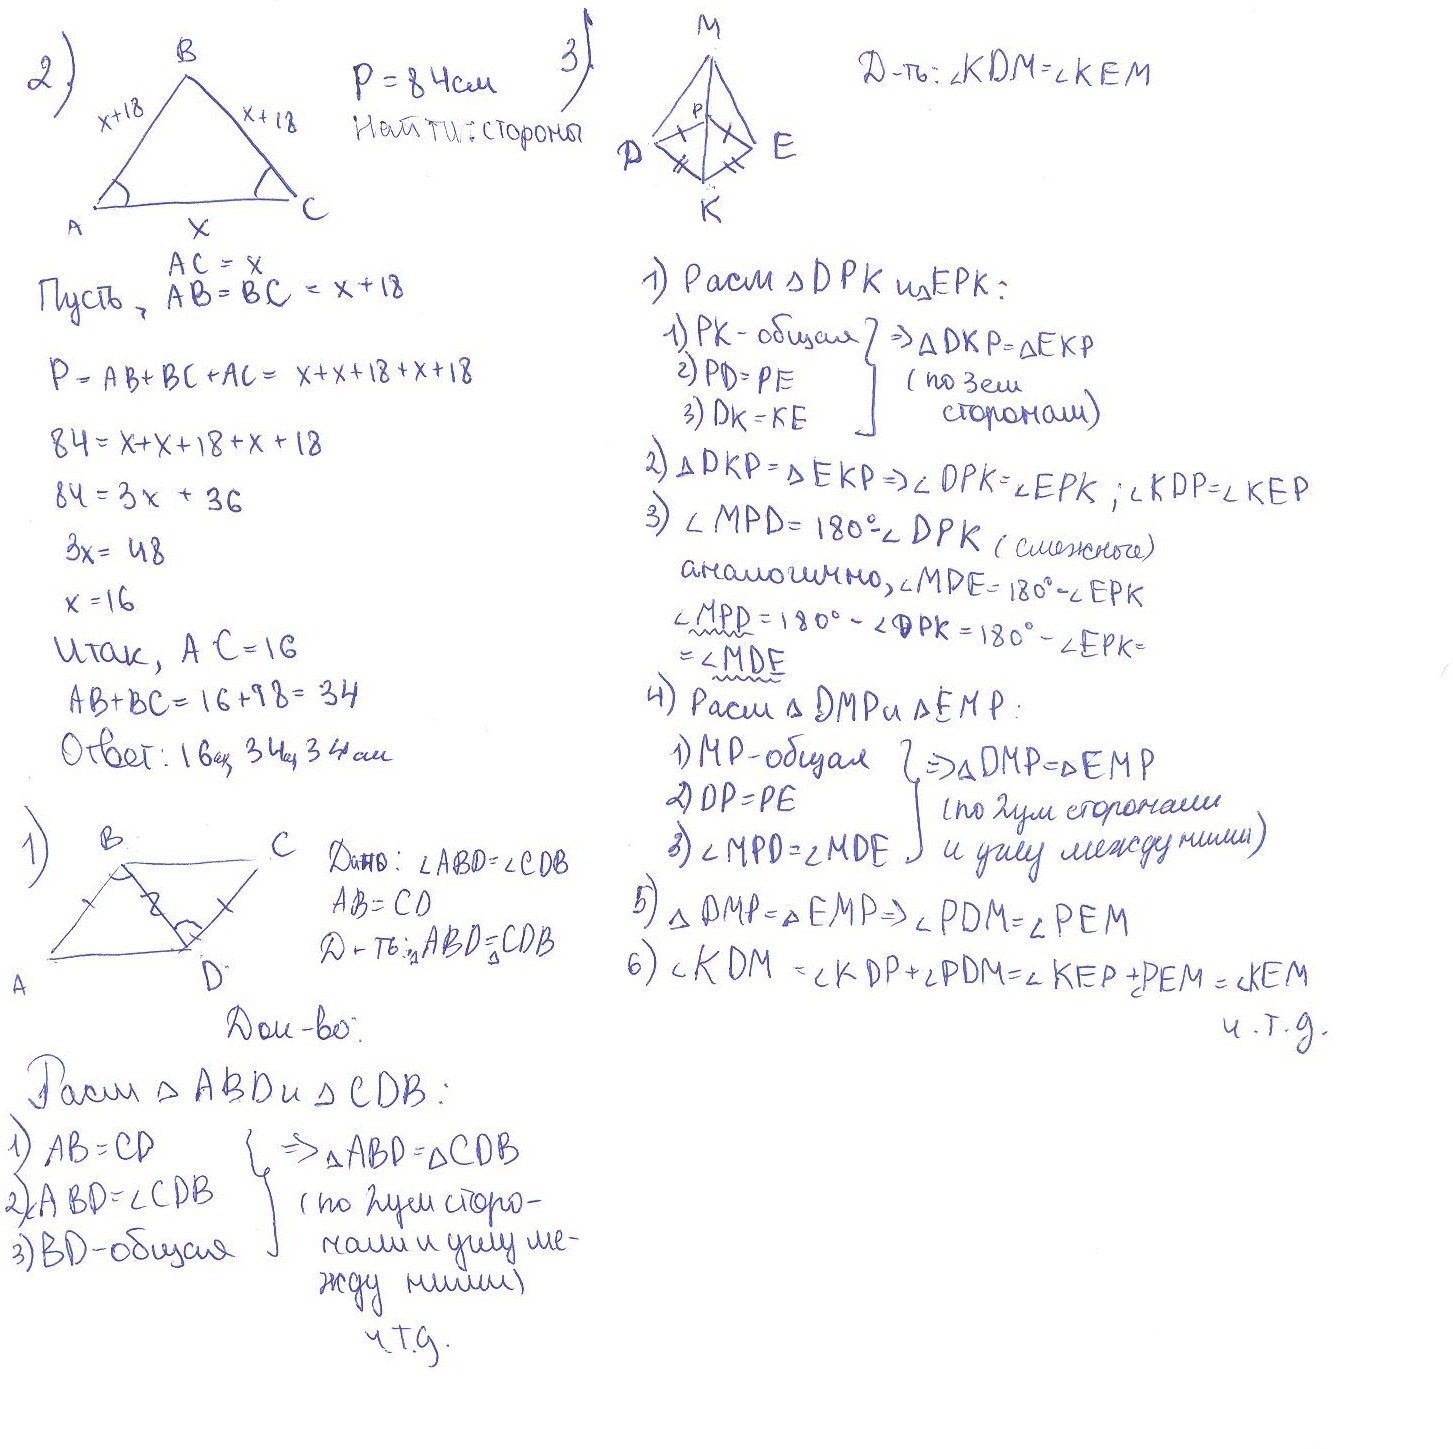 2)
B
x+18
x+18
A
C
x
P = 84см
Найти: стороны
AC = x
Пусть, AB = BC = x+18
P = AB+BC+AC = x+x+18+x+18
84 = x+x+18+x+18
84 = 3x + 36
3x = 48
x = 16
Итак, AC = 16
AB+BC = 16+18 = 34
Ответ: 16см, 34см, 34см
1)
B
C
A
D
Дано: ∠ABD=∠CDB
AB = CD
Д-ть: △ABD=△CDB
Док-во:
Расм △ABD и △CDB:
1) AB = CD
2) ∠ABD=∠CDB
3) BD-общая
=> △ABD=△CDB
(по 2ум сторо-
нами и углу ме-
жду ними)
ч.т.д.
3)
M
P
D
E
K
Д-ть: ∠KDM=∠KEM
1) Расм △DPK и △EPK:
1) PK-общая
2) PD=PE
3) DK=KE
=> △DKP=△EKP
(по 3ем
сторонам)
2) △DKP=△EKP => ∠DPK=∠EPK; ∠KDP=∠KEP
3) ∠MPD = 180°-∠DPK (смежные)
аналогично, ∠MDE = 180°-∠EPK
∠MPD = 180° - ∠DPK = 180° - ∠EPK=
= ∠MDE
4) Расм △DMP и △EMP:
1) MP-общая
2) DP=PE
3) ∠MPD=∠MDE
=> △DMP=△EMP
(по 2ум сторонами
и углу между ними)
5) △DMP=△EMP => ∠PDM=∠PEM
6) ∠KDM = ∠KDP+∠PDM=∠KEP+∠PEM = ∠KEM
ч.т.д.